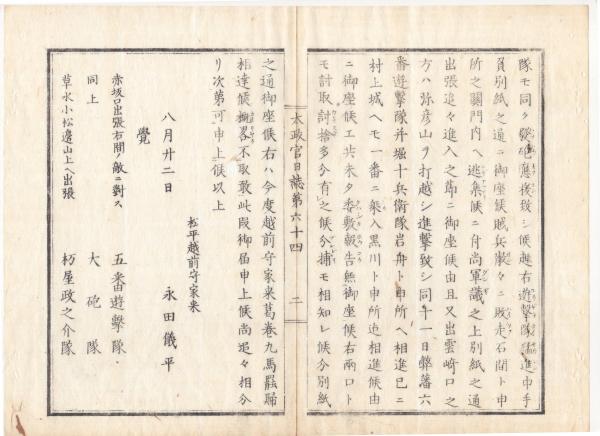 隊モ同ク發砲應援致シ候趣右遊擊隊猛進中手
負別紙之通ニ御座候賊兵散々ニ敗走石間ト申
所之關門内ヘ逃集候ニ付尚軍議之上別紙之通
出張追々進入之節ニ御座候由且又出雲崎口之
方ハ弥彦山ヲ打越シ進擊致シ同十一日弊藩六
番遊擊隊并堀十兵衛隊岩舟ト申所ヘ相進已ニ
村上城ヘモ一番ニ乘入黒川ト申所迄相進候由
ニ御座候エ共未タ委敷報告無御座候右兩口ト
モ討取討捨多分有之候分捕モ相知レ候分別紙
太政官日誌第六十四
二
之通御座候右ハ今度越前守家来葛巻九馬罷歸
相達候概畧不取敢此段御届申上候尚追々相分
リ次第可申上候以上
松平越前守家来
八月廿二日
永田儀平
覺
赤坂口出張右間ノ敵ニ對ス
五番遊擊隊
同上
大砲隊
草水小松邊山上ヘ出張
杤屋政之介隊